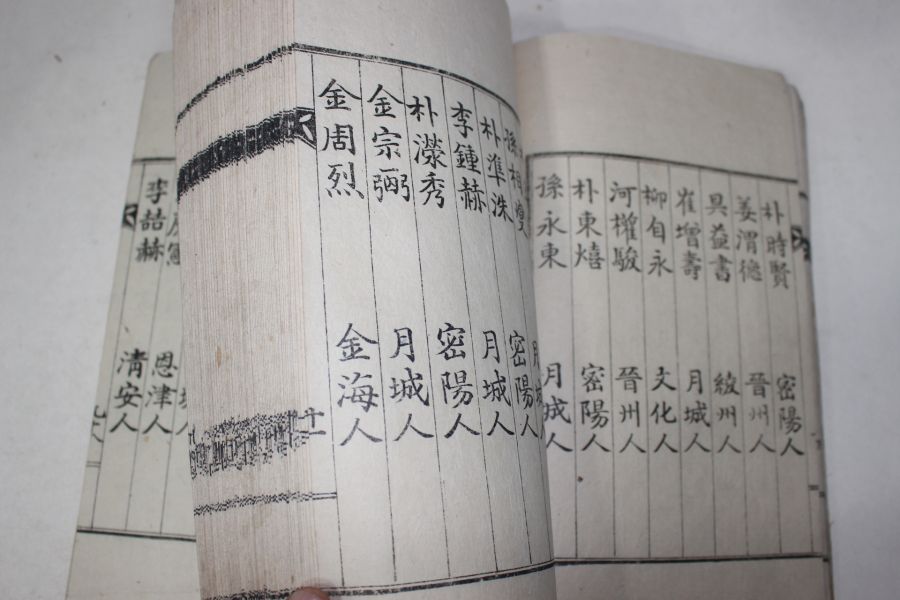 朴時賢 密陽人
姜渭德 晉州人
具益書 綾州人
崔增壽 月城人
柳自永 文化人
河權駿 晉州人
朴東熺 密陽人
孫永東 月城人
孫相 月城
朴準洙 密陽人
李鍾赫 月城人
朴濚秀 密陽人
金宗弼 月城人
金周烈 金海人
十一
恩津人
李喆赫 清安人